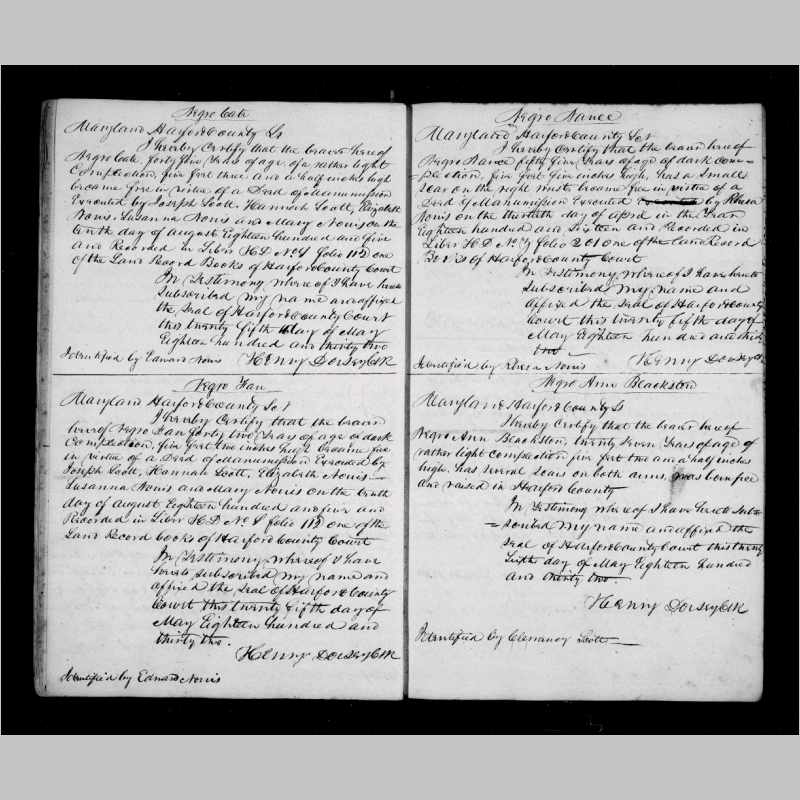 Negro Cate
Maryland Harford County Ss
I hereby Certify that the bearer hereof
Negro Cate, forty five Years of age of a rather light
Complection, five feet three and a half inches high
became free in virtue of a Deed of Manumission
Executed by Joseph Scott, Hannah Scott, Elizabeth
Norris, Susanna Norris and Mary Norris on the
tenth day of August Eighteen hundred and five
and Recorded in Libre HD No folio 112 one
of the Land Record Books of Harford County Court
In Testimony whereof I have hereto
Subscribed my name and affixed
the Seal of Harford County Court
this twenty fifth day of May
Eighteen hundred and thirty two
Identified by Edward Norris Henny Dorsey Clk
Negro Fan
Maryland Harford County Sct
I hereby Certify that the bearer
hereof Negro Fan forty two Years of age of dark
Complection, five feet two inches high became free
in virtue of a Deed of Manumission Executed by
Joseph Scott, Hannah Scott, Elizabeth Norris
Susanna Norris and Mary Norris on the tenth
day of August Eighteen hundred and five and
Recorded in Libre HD No folio 112 one of the
Land Record books of Harford County Court
In Testimony whereof I have
hereto Subscribed my name and
affixed the Seal of Harford County
Court this twenty fifth day of
May Eighteen hundred and
thirty two.
Henny Dorsey Clk
Identified by Edward Norris
Negro Nance
Maryland Harford County Sct
I hereby Certify that the bearer hereof
Negro Nance fifty five Years of age of dark com=
=plection, five feet five inches high, has a Small
Scar on the right wrist, became free in virtue of a
Deed of Manumission Executed by Rhesa
Norris on the thirtieth day of April in the Year
Eighteen hundred and Sixteen and Recorded in
Libre HD No folio 201 one of the Land Record
Books of Harford County Court
In Testimony whereof I have hereto
Subscribed my name and
affixed the Seal of Harford County
Court this twenty fifth day of
May Eighteen hundred and thirty
two
Identified by Rhesa Norris Henny Dorsey Clk
Negro Ann Blackston
Maryland Harford County Ss
I hereby Certify that the bearer hereof
Negro Ann Blackston, twenty seven Years of age of
rather light complection, five feet two and a half inches
high, has several scars on both arms, was born free
and raised in Harford County
In Testimony whereof I have hereto Sub=
=scribed my name and affixed the
Seal of Harford County Court this twenty
fifth day of May Eighteen hundred
and thirty two
Henny Dorsey Clk
Identified by Scott